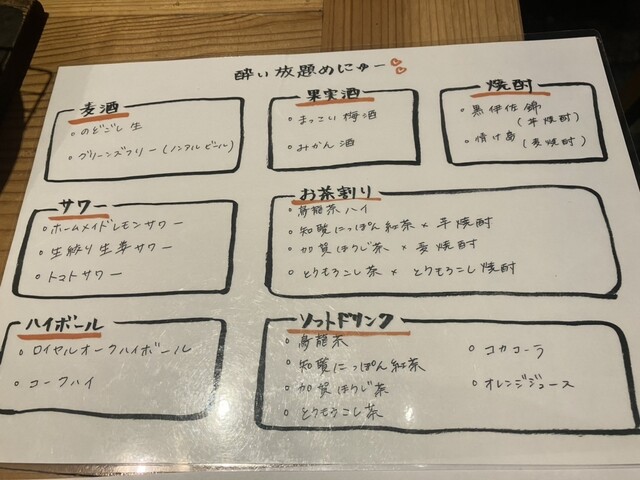 酔い放題めにゅー
麦酒
・のどごし生
・グリーンズフリー(ノンアルビール)
果実酒
・まっこい梅酒
・みかん酒
焼酎
・黒伊佐錦
(芋焼酎)
・情け島
(麦焼酎)
サワー
・ホームメイドレモンサワー
・生絞り生姜サワー
・トマトサワー
お茶割り
・烏龍茶ハイ
・知覧にっぽん紅茶×芋焼酎
・加賀ほうじ茶×麦焼酎
・とうもろこし茶×とうもろこし焼酎
ハイボール
・ロイヤルオークハイボール
・コークハイ
ソフトドリンク
・烏龍茶
・知覧にっぽん紅茶
・加賀ほうじ茶
・とうもろこし茶
・コカコーラ
・オレンジジュース